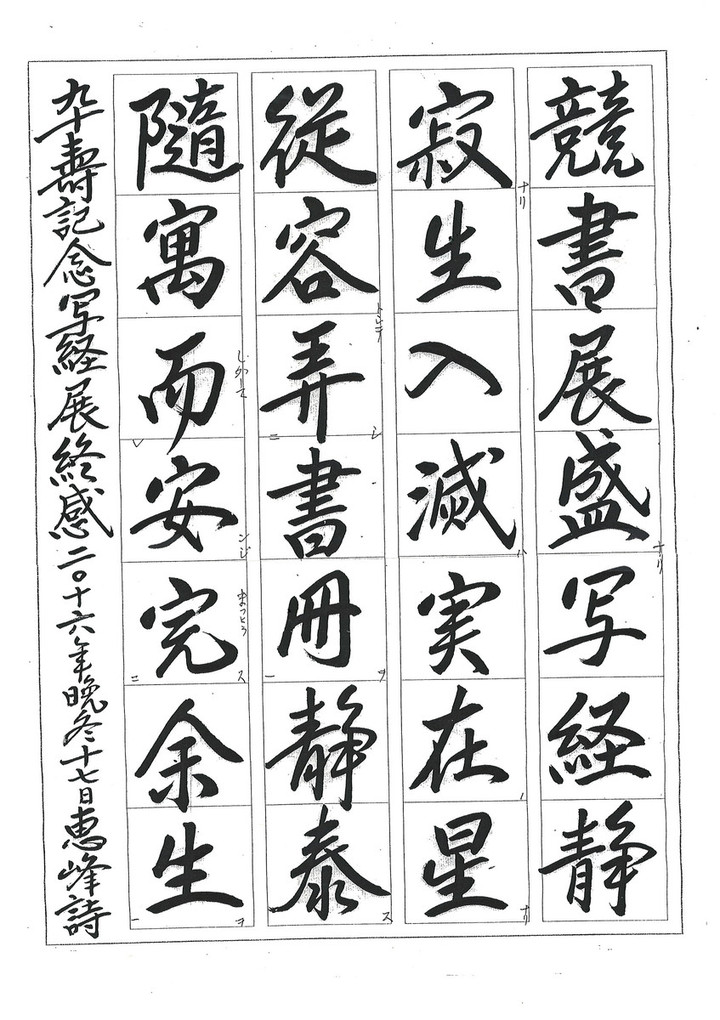 競書展盛写経静
寂生入滅実在星
従容弄書冊静泰
隨寓而安完余生
九十壽記念写経展終感二〇十六年晩冬十七日恵峰詩